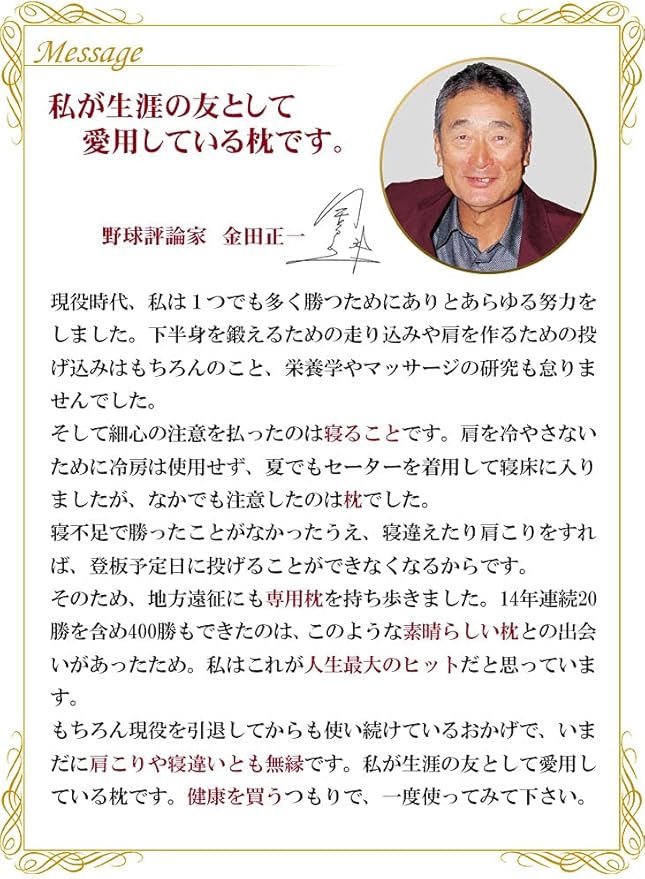 Message
私が生涯の友として
愛用している枕です。
野球評論家 金田正一
現役時代、私は１つでも多く勝つためにありとあらゆる努力を
しました。下半身を鍛えるための走り込みや肩を作るための投
げ込みはもちろんのこと、栄養学やマッサージの研究も怠りま
せんでした。
そして細心の注意を払ったのは寝ることです。肩を冷やさない
ために冷房は使用せず、夏でもセーターを着用して寝床に入り
ましたが、なかでも注意したのは枕でした。
寝不足で勝ったことがなかったうえ、寝違えたり肩こりをすれ
ば、登板予定日に投げることができなくなるからです。
そのため、地方遠征にも専用枕を持ち歩きました。14年連続20
勝を含め400勝もできたのは、このような素晴らしい枕との出会
いがあったため。私はこれが人生最大のヒットだと思っていま
す。
もちろん現役を引退してからも使い続けているおかげで、いま
だに肩こりや寝違いとも無縁です。私が生涯の友として愛用し
ている枕です。健康を買うつもりで、一度使ってみて下さい。